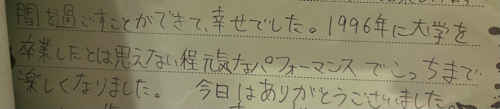 間を過ごすことができて、幸せでした。1996年に大学を
卒業したとは思えない程元気なパフォーマンスでこっちまで
楽しくなりました。 今日はありがとうございました。